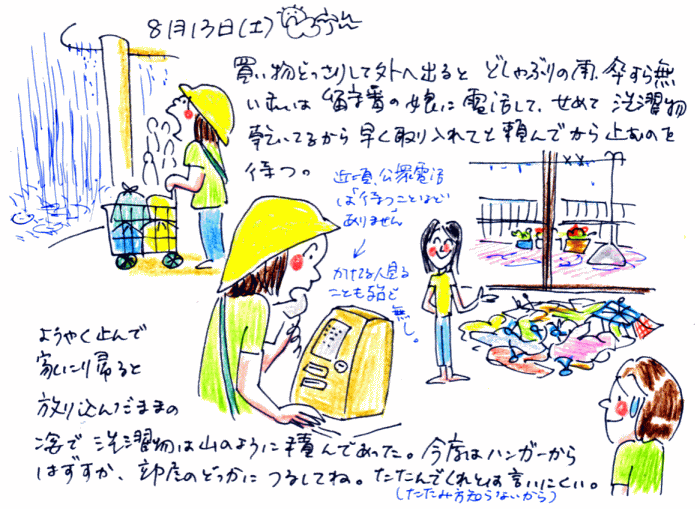 8月13日(土)
買い物どっさりして外へ出ると どしゃぶりの雨、傘すら無
い私は 留守番の娘に電話して、せめて 洗濯物
乾いてるから 早く取り入れてと頼んでから 止むのを
待つ。
近頃、公衆電話
は「待つ」ことはほど
ありません
かけてる人見る
ことも殆ど
無し。
ようやく止んで
家に帰ると
放り込んだままの
姿で 洗濯物は山のように積んであった。今度はハンガーから
はずすか、部屋のどっかに つるしてね。たたんでくれとは言いにくい。
(たたみ方知らないから)